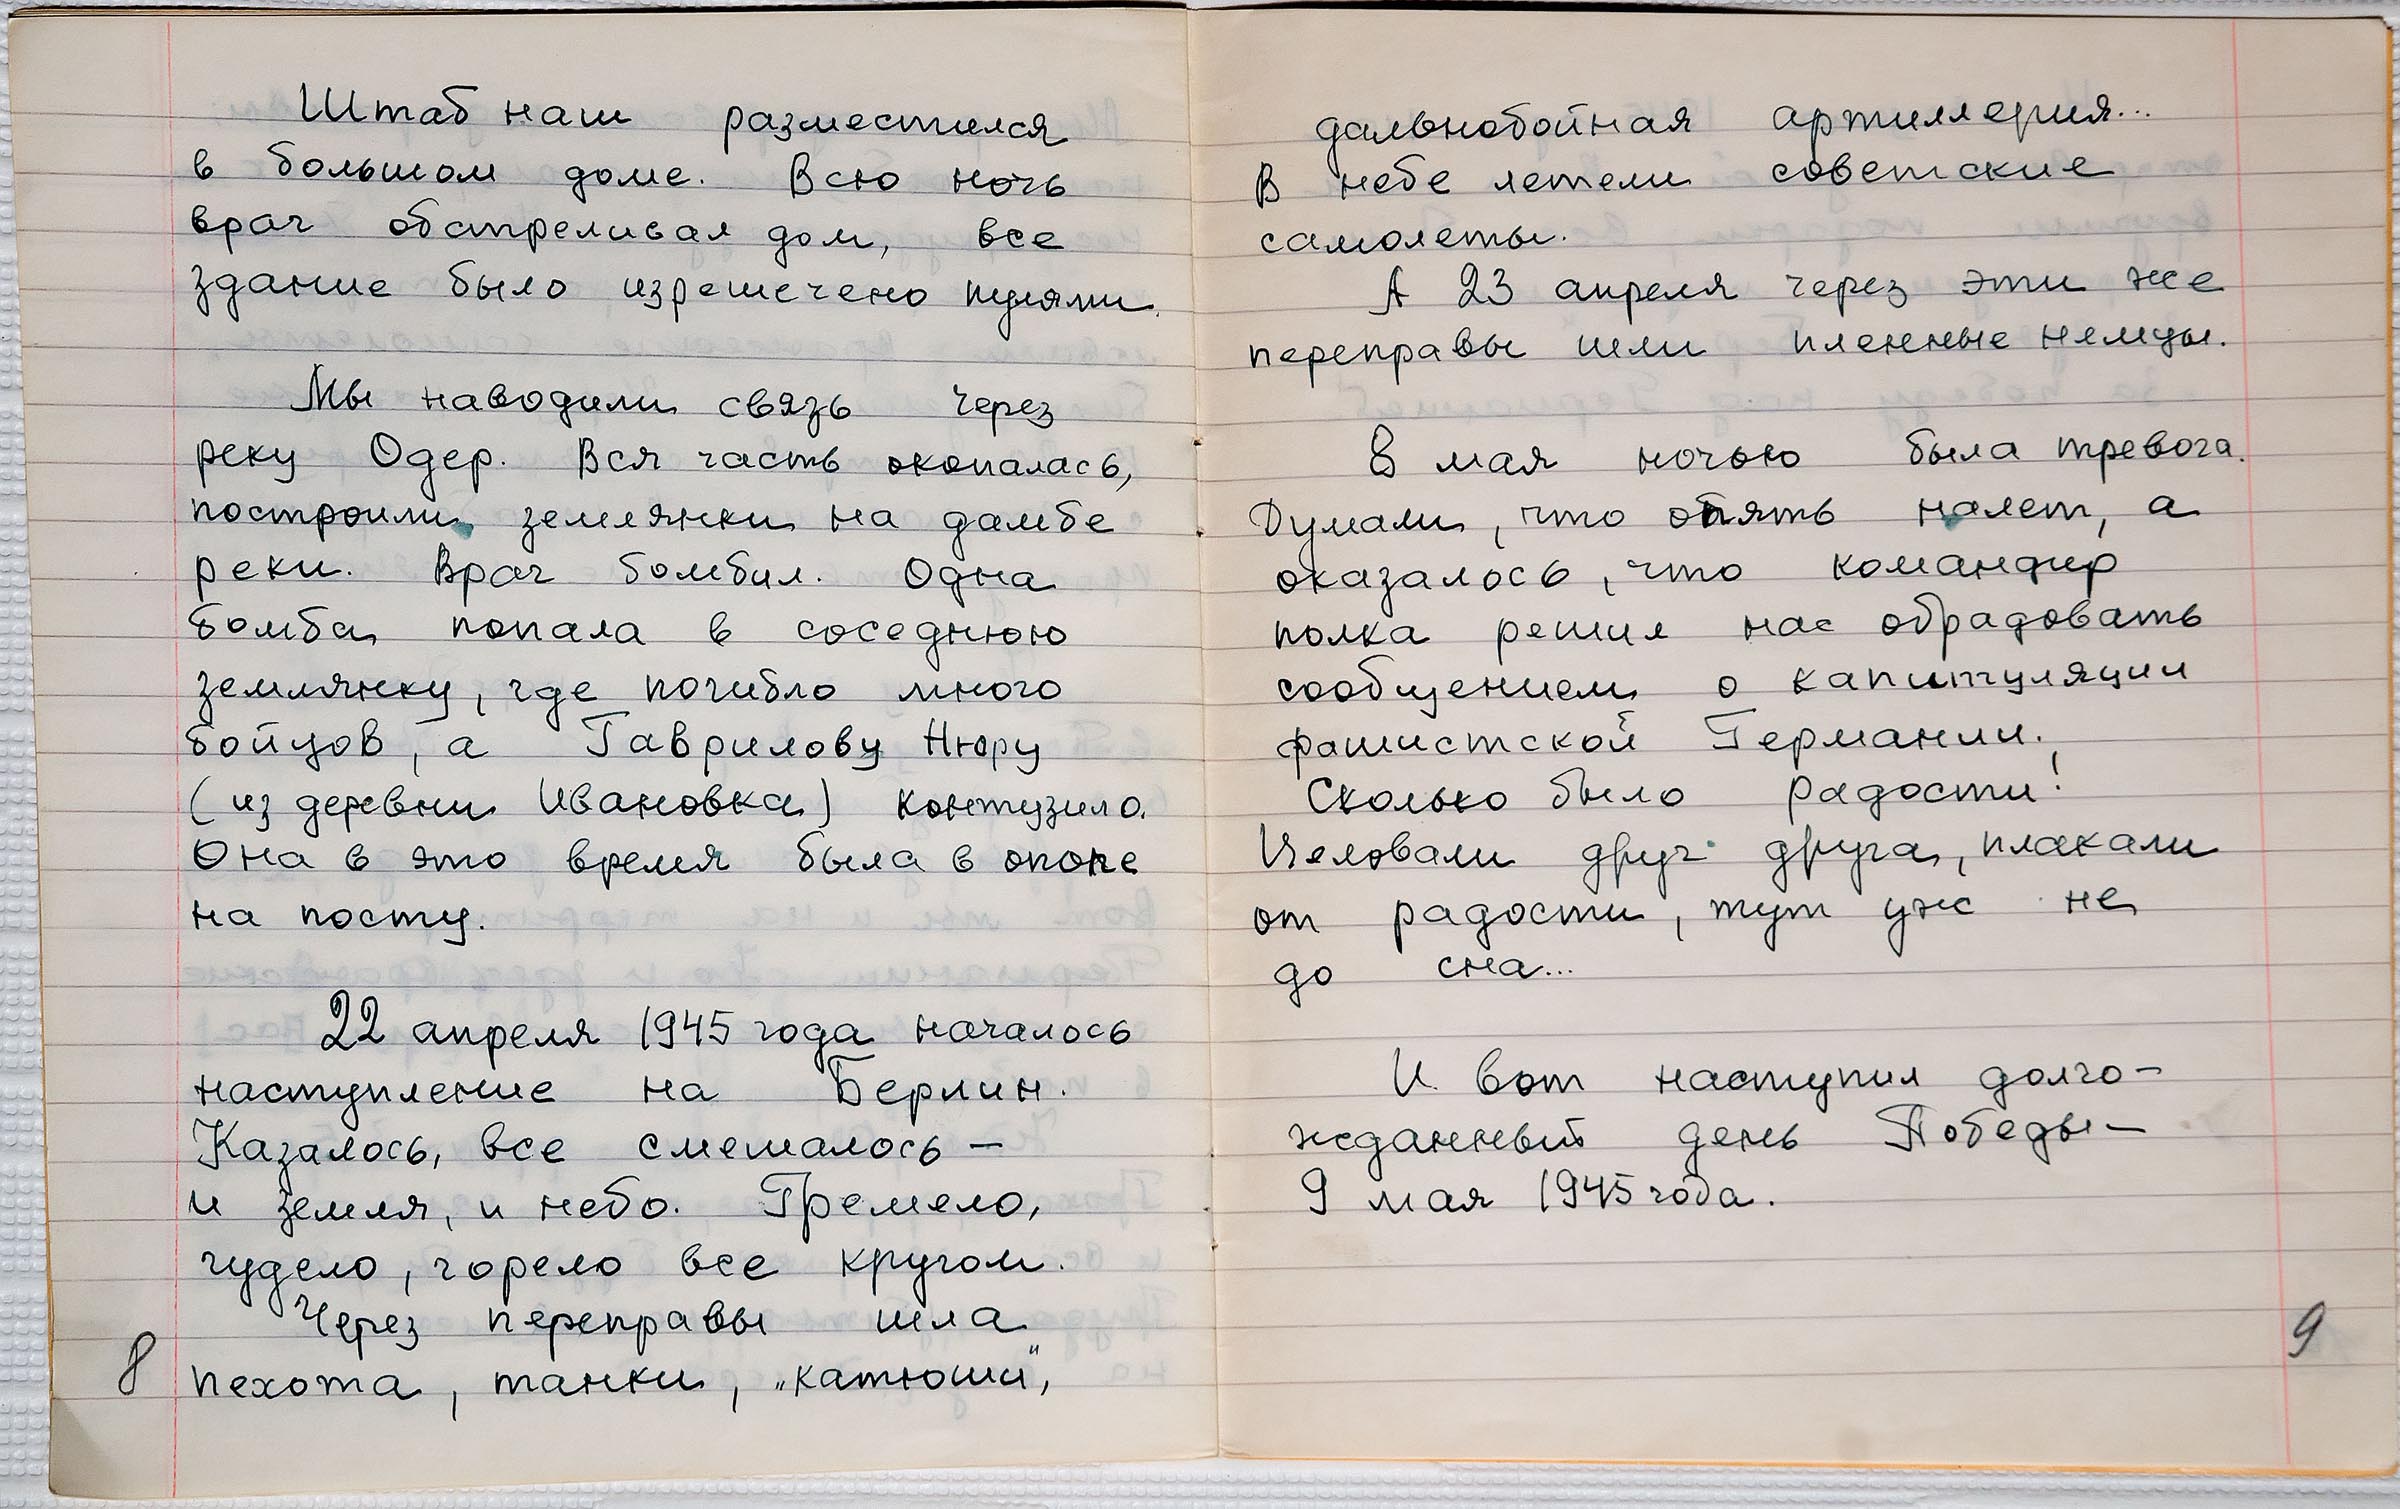 Штаб наш разместился
в большом доме. Всю ночь
враг обстреливал дом, все
здание было изрешечено пулями.
Мы наводили связь через
реку Одер. Вся часть окопалась,
построили землянки на дамбе
реки. Враг бомбил. Одна
бомба попала в соседнюю
землянку, где погибло много
бойцов, а Гаврилову Нюру
(из деревни Ивановка) контузило.
Она в это время была в окопе
на посту.
22 апреля 1945 года началось
наступление на Берлин.
Казалось, все смешалось –
и земля, и небо. Гремело,
гудело, горело все кругом.
Через переправы шла
8 пехота, танки, „катюши",
дальнобойная артиллерия...
В небе летели советские
самолеты.
А 23 апреля через эти же
переправы шли пленные немцы.
8 мая ночью была тревога.
Думали, что опять налет, а
оказалось, что командир
полка решил нас обрадовать
сообщением о капитуляции
фашистской Германии.
Сколько было радости!
Целовали друг друга, плакали
от радости, тут уж не
до сна...
И вот наступил долго-
жданный день Победы –
9 мая 1945 года.
9